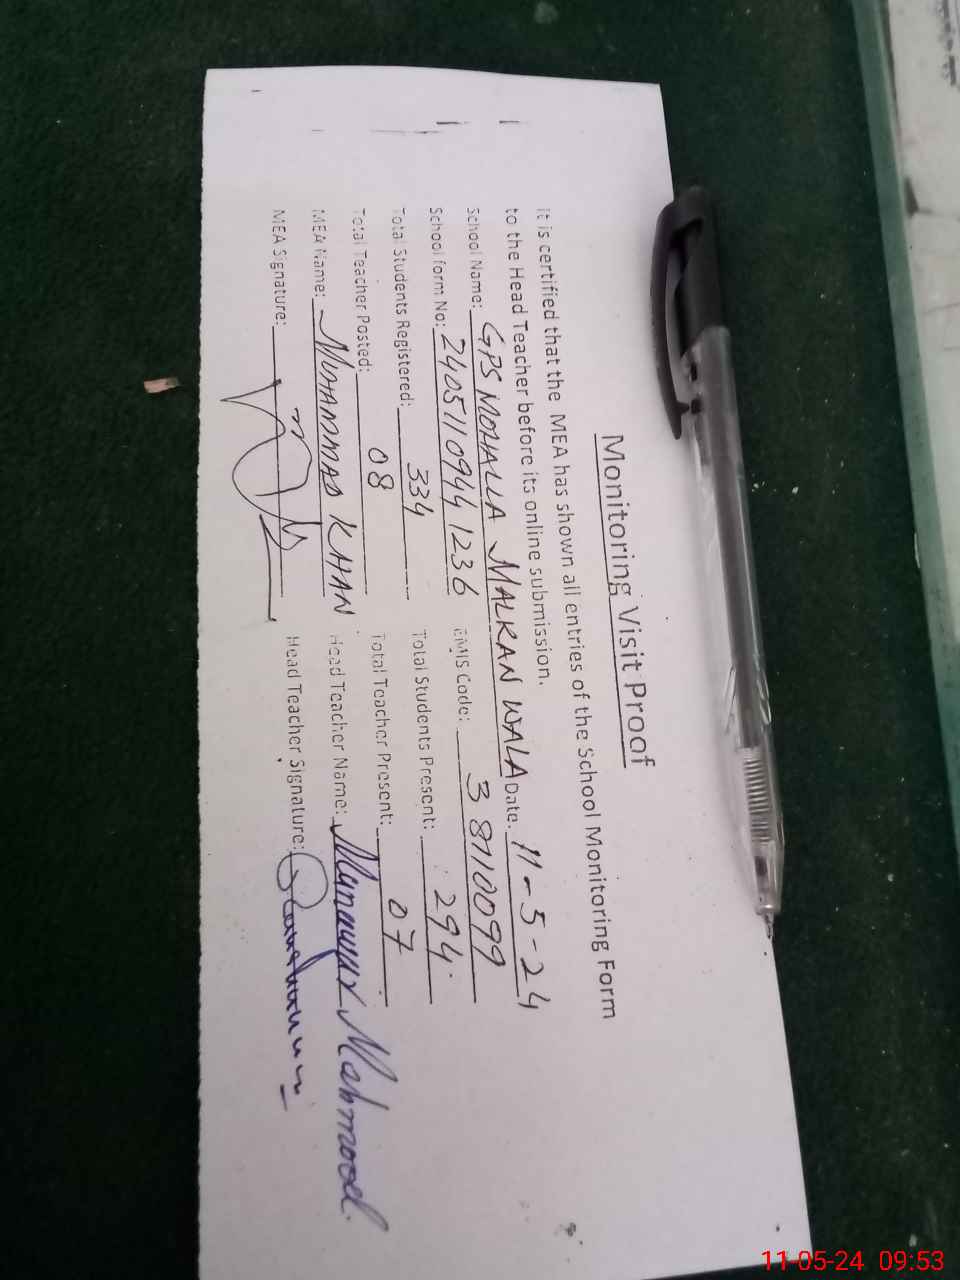 Monitoring Visit Proof
It is certified that the MEA has shown all entries of the School Monitoring Form
to the Head Teacher before its online submission.
School Name: GPS MOHALLA MALKAN WALA Date: 11-5-24
School form No: 24051109441236 EMIS Code: 38110099
Total Students Registered: 334 Total Students Present: 294
Total Teacher Posted: 08 Total Teacher Present: 07
MEA Name: MUHAMMAD KHAN Head Teacher Name: Mahmood
MEA Signature: Head Teacher Signature:
11-05-24 09:53